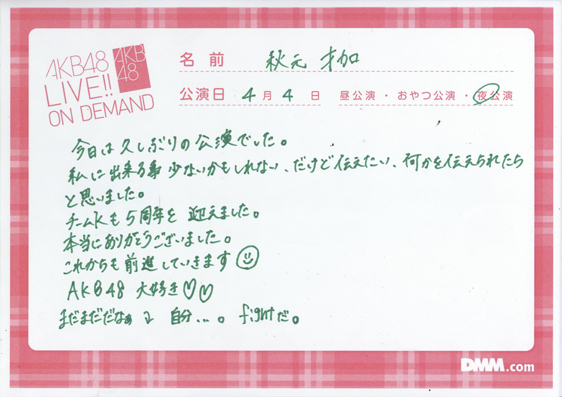 AKB48
LIVE!!
ON DEMAND
AKB
48
名前 秋元 才加
公演日 4月4日 昼公演・おやつ公演・夜公演
今日は久しぶりの公演でした。
私に出来る事 少ないかもしれない、だけど伝えたい、何かを伝えられたら
と思いました。
チームKも5周年を 迎えました。
本当にありがとうございました。
これからも前進していきます
AKB48 大好き♡♡
まだまだだなぁ 自分...。fightだ。
DMM.com